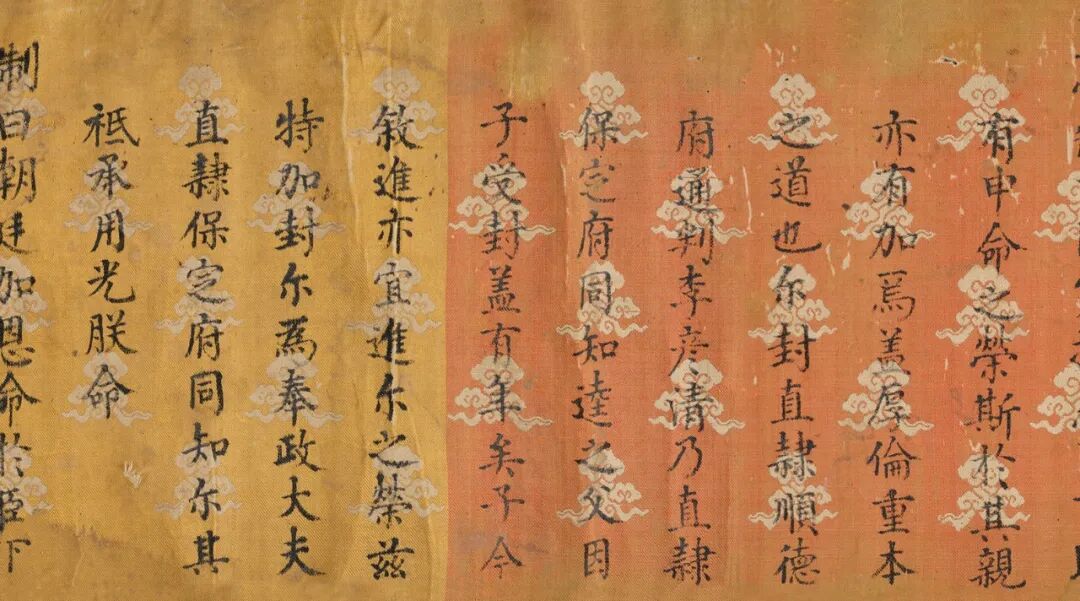 有申命之榮斯於其親
亦有加焉盖厚倫重本
之道也尔封直隸順德
府通判李彥清乃直隸
保定府同知逵之父因
子受封盖有年矣子今
敘進亦宜進尔之榮兹
特加封尔為奉政大夫
直隸保定府同知尔其
祗承用光朕命
制曰朝廷加恩命於臣下